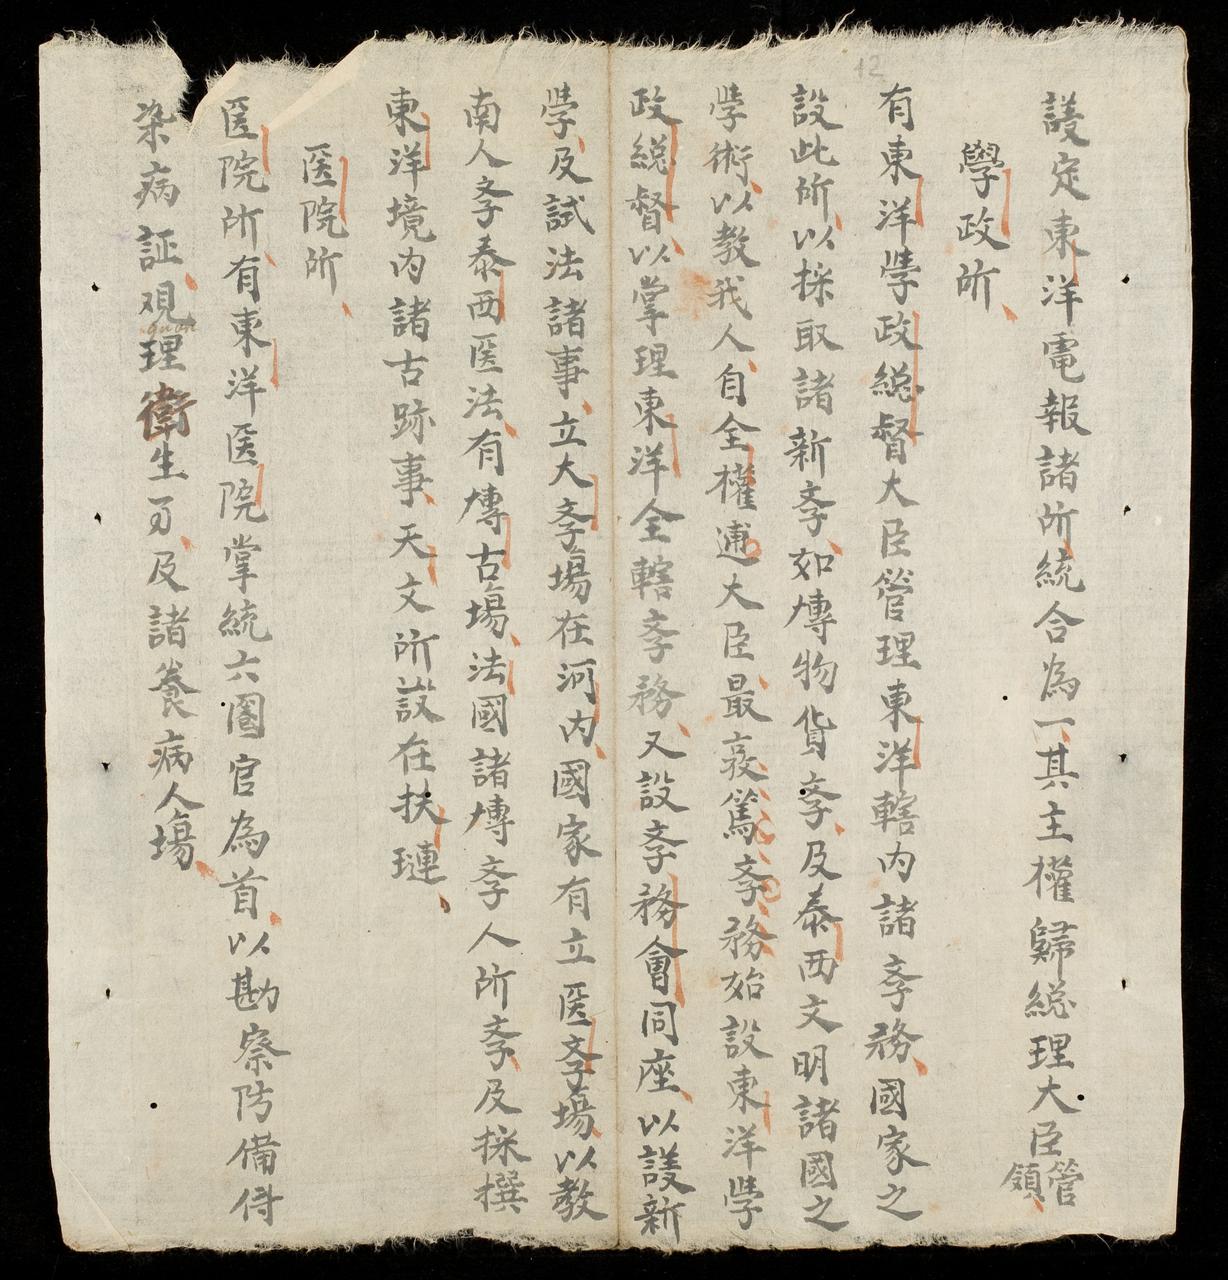 12
議定東洋電報諸所統合為一其主權歸総理大臣管領
學政所
有東洋學政総督大臣管理東洋轄内諸斈務國家之
設此所以採取諸新斈如博物貨斈及泰西文明諸國之
學術以教我人自全權逋大臣最敦篤斈務始設東洋學
政総督以掌理東洋全轄斈務又設斈務會同座以議新
學及試法諸事立大斈場在河内國家有立医斈場以教
南人斈泰西医法有博古場法國諸博斈人所斈及採撰
東洋境内諸古跡事天文所設在扶璉
医院所
医院所有東洋医院掌統六圈官為首以勘察防備時
染病証观理衛生事及諸養病人場
quan